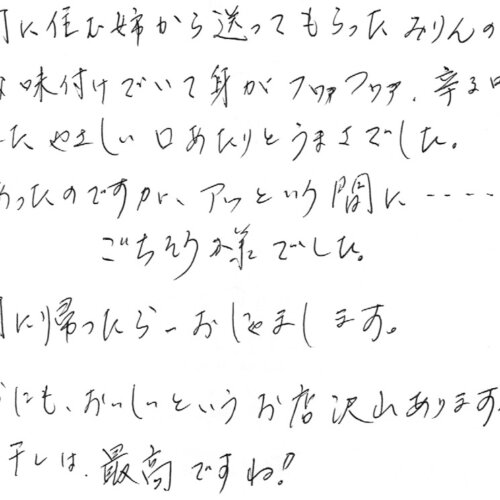 町に住む姉から送ってもらったみりんの
味付けでいて身がフワァフワァ、辛
たやさしい口あたりとうまさでした。
あったのですが、アッという間に・・・・
ごちそう様でした。
に帰ったら一おじゃまします。
にも、おいしいというお店沢山あります
干しは、最高ですね!